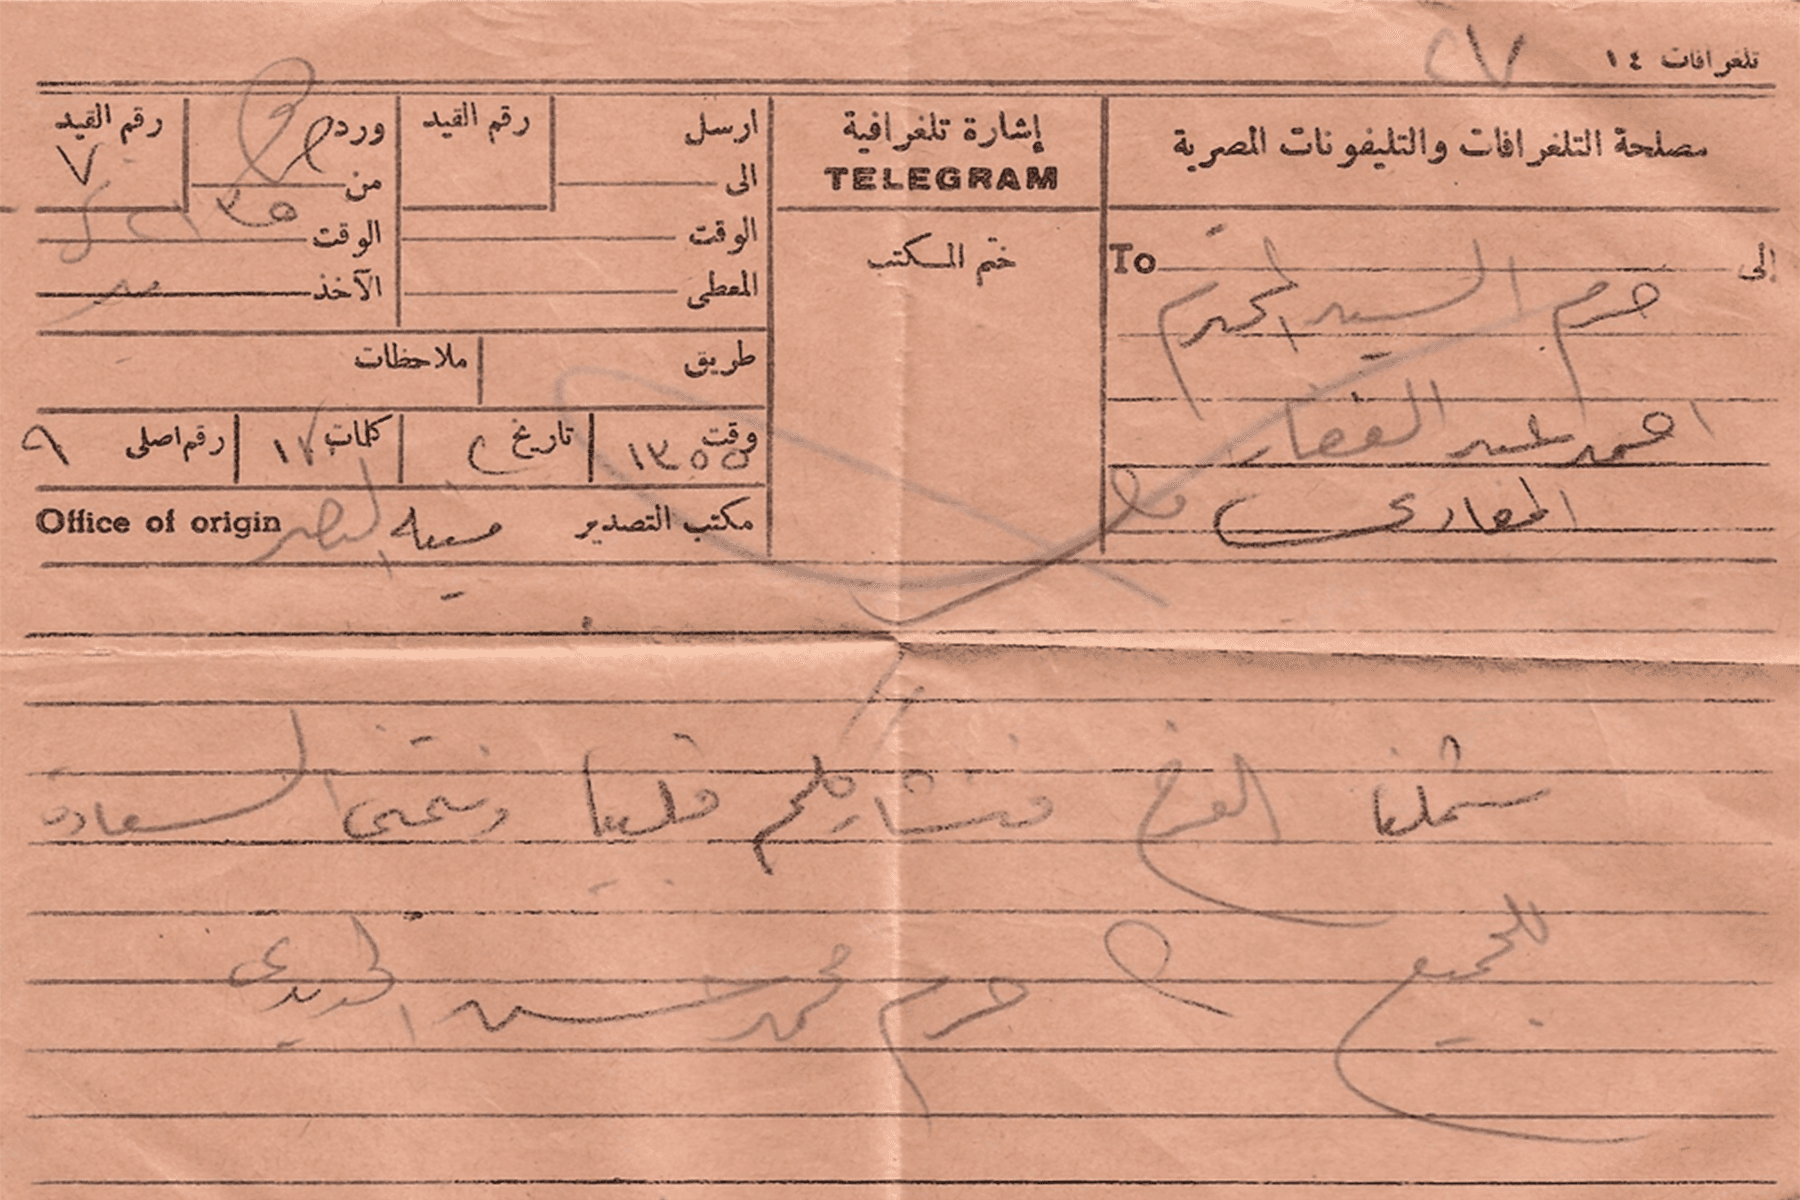 تلغرافات ١٤
٢٧
مصلحة التلغرافات والتليفونات المصرية
إشارة تلغرافية
TELEGRAM
ختم المكتب
ارسل
رقم القيد
الى
الوقت
المعطى
ورد
رقم القيد
٧
من
الوقت
الآخذ
طريق
ملاحظات
وقت ١٣٥٥
تاريخ ٢
كلمات ١٧
رقم اصلى ٩
مكتب التصدير
Office of origin
إلى
To
حرم السيد المحترم
احمد عبد الغفار
شملنا الفرح فنشارككم قلبيا ونتمنى السعادة
للجميع
حرم محمد حسن الحديدى